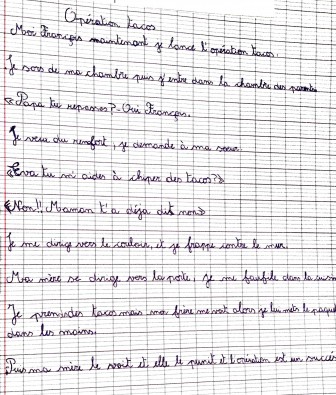 Opération tacos
Moi François maintenant je lance l'opération tacos.
Je sors de ma chambre puis j'entre dans la chambre des parents
«Papa tu reposes?-Oui François.
Je veu du renfort, je demande à ma sœur.
«Eva tu m'aides à chiper des tacos?»
«Non!! Maman t'a déja dit non»
Je me dirige vers le couloir, et je frappe contre le mur.
Ma mère se dirige vers la porte, je me faufile dans la
Je prends des tacos mais mon frère me voit alors je lui mets le paque
dans les mains.
Puis ma mère le voit et elle le punit et l'opération est un succès